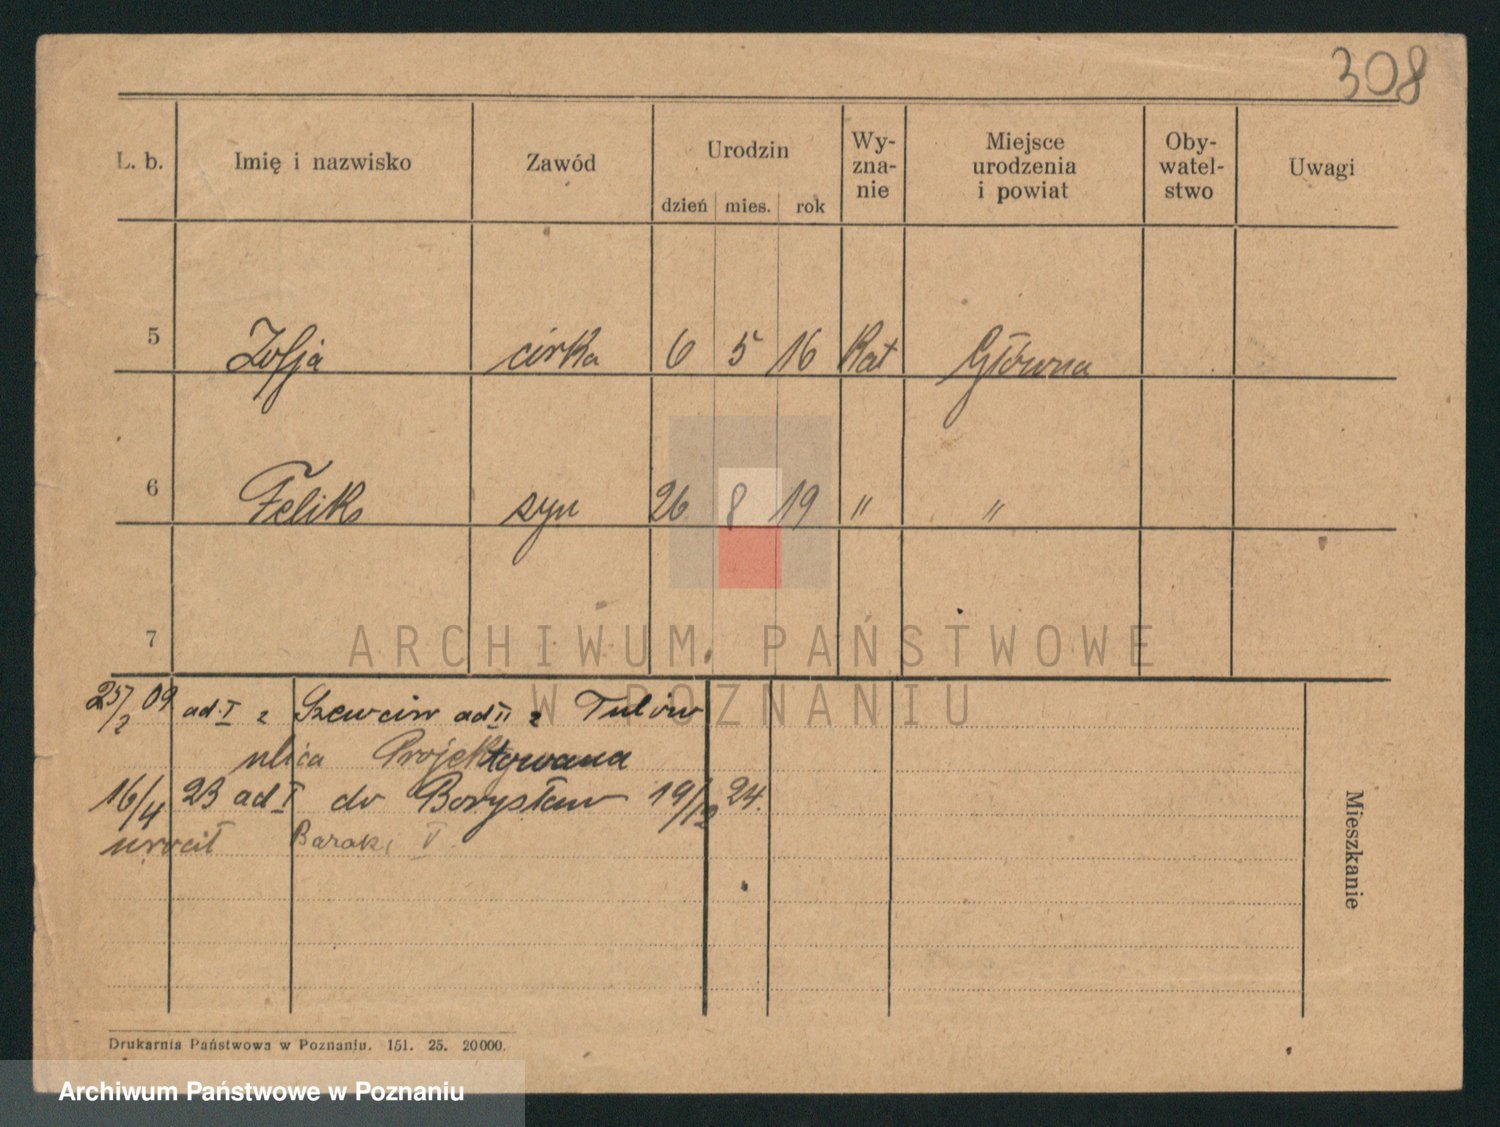 308
L. b. Imię i nazwisko Zawód Urodzin dzień mies. rok Wy-zna-nie Miejsce urodzenia i powiat Oby-watel-stwo Uwagi
5 Zofja córka 6 5 16 Kat Główna
6 Feliks syn 26 8 19 " "
7
ARCHIWUM PAŃSTWOWE
W POZNANIU
25/2 09 ad. I z ad II z Tulów
ulica Projektowana
16/4 23 ad I do Borysław 19/12 24.
wrócił Baraki V.
Mieszkanie
Drukarnia Państwowa w Poznaniu. 151. 25. 20000.
Archiwum Państwowe w Poznaniu